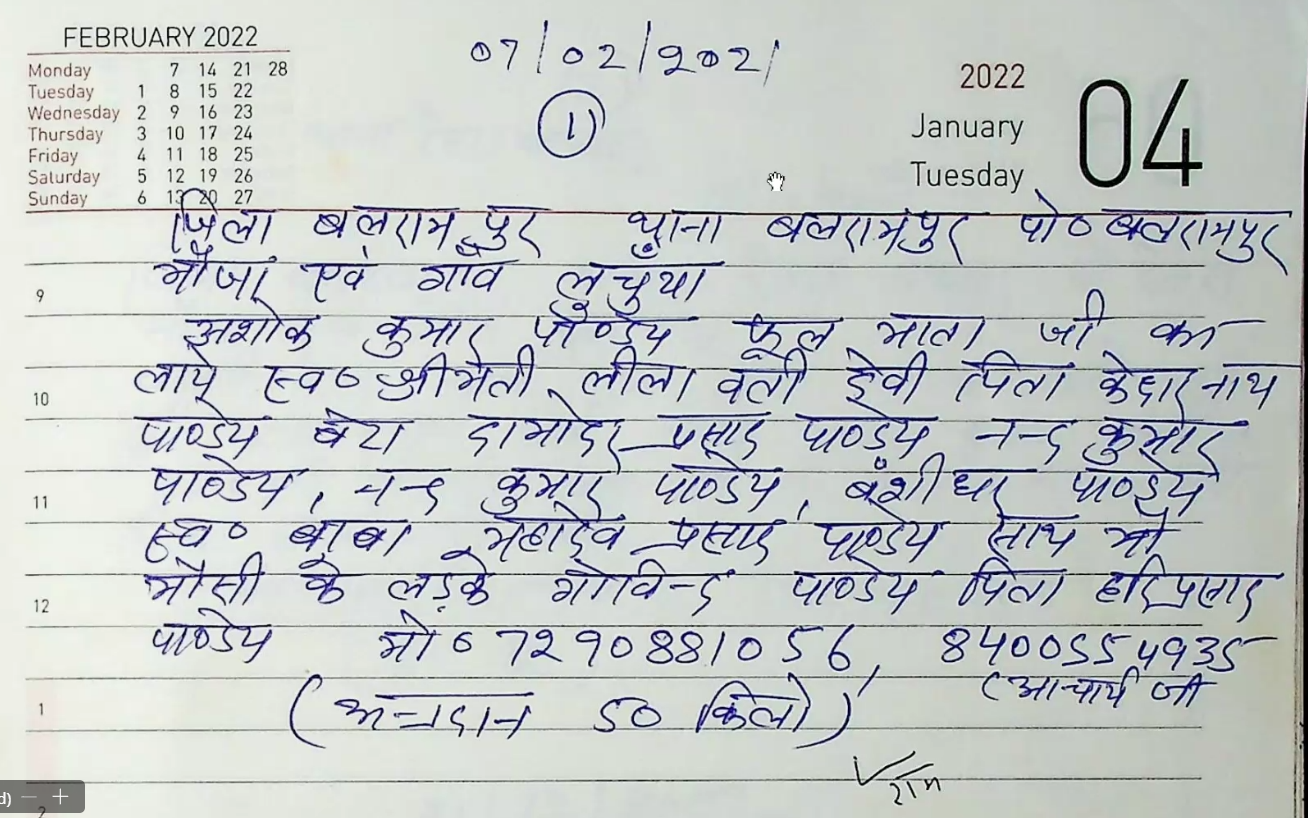 FEBRUARY 2022
Monday 7 14 21 28
Tuesday 1 8 15 22
Wednesday 2 9 16 23
Thursday 3 10 17 24
Friday 4 11 18 25
Saturday 5 12 19 26
Sunday 6 13 20 27
07/02/2021
1
2022
January
Tuesday
04
जिला बलरामपुर थाना बलरामपुर पो० बलरामपुर
मौजा एवं गाँव लुचुया
9
अशोक कुमार पाण्डेय फूल माता जी का
लाये स्व० श्रीमती लीलावती देवी पिता केदारनाथ
10
पाण्डेय बेटा दामोदर प्रसाद पाण्डेय नन्द कुमार
पाण्डेय, नन्द कुमार पाण्डेय, बंशीधर पाण्डेय
11
स्व० बाबा महादेव प्रसाद पाण्डेय साथ में
मौसी के लड़के गोविन्द पाण्डेय पिता हरिप्रसाद
12
पाण्डेय मो० 7290881056, 8400554935
(आचार्य जी
1
(अन्नदान 50 किलो)
2